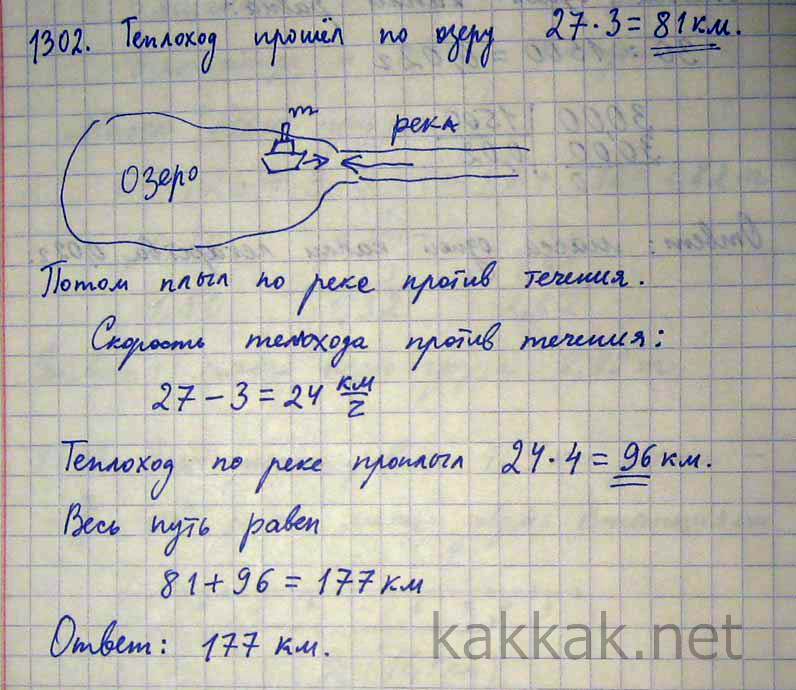 1302. Теплоход прошёл по озеру 27·3=81км.
т
река
Озеро
Потом плыл по реке против течения.
Скорость теплохода против течения:
27-3=24 км/г
Теплоход по реке проплыл 24·4=96 км.
Весь путь равен
81+96=177 км
Ответ: 177 км.
kakkak.net